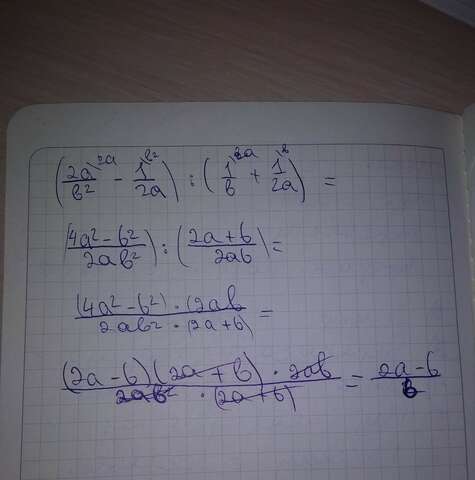 (2a\²ᵃ/b² - 1\ᵇ²/2a) : (1\²ᵃ/b + 1\ᵇ/2a) =
(4a² - b²/2ab²) : (2a + b/2ab) =
(4a² - b²) · (2ab/2ab² · (2a + b) =
(2a - b)(2a + b) · 2ab/2ab² · (2a + b) = 2a - b/b